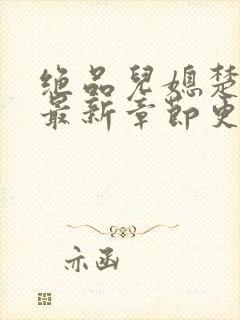 绝品兒媳楚
最新章節更
亦函